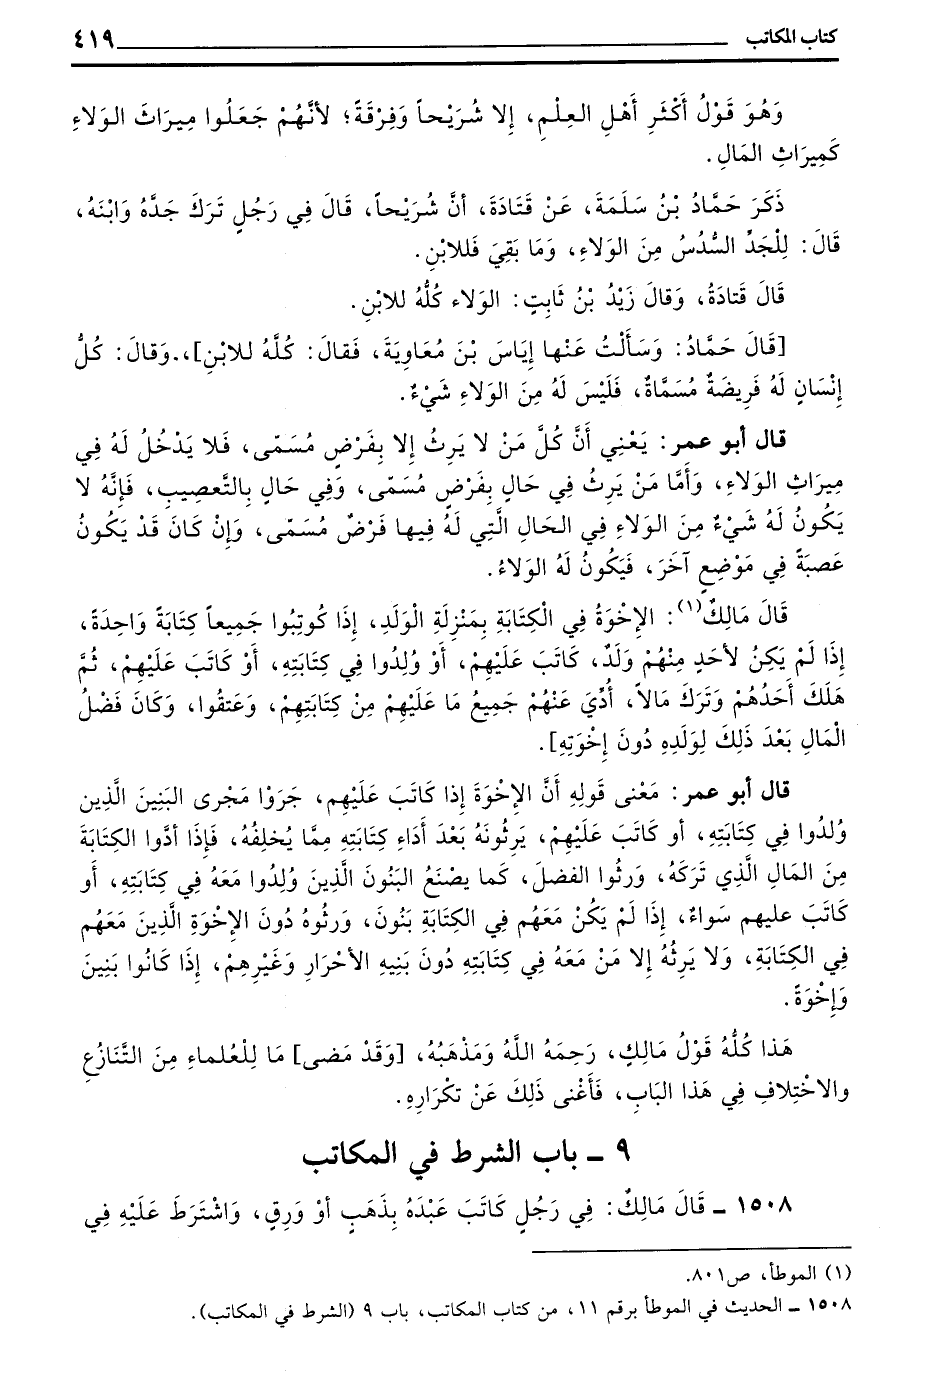 كتاب المكاتب ٤١٩
وَهُوَ قَوْلُ أَكْثَرِ أَهْلِ العِلْمِ، إِلا شُرَيْحاً وَفِرْقَةً؛ لأَنَّهُمْ جَعَلُوا مِيرَاثَ الوَلاءِ
كَمِيرَاثِ المَالِ.
ذَكَرَ حَمَّادُ بْنُ سَلَمَةَ، عَنْ قَتَادَةَ، أَنَّ شُرَيْحاً، قَالَ فِي رَجُلٍ تَرَكَ جَدَّهُ وَابْنَهُ،
قَالَ: لِلْجَدِّ السُّدُسُ مِنَ الوَلاءِ، وَمَا بَقِيَ فَللابْنِ.
قَالَ قَتَادَةُ، وَقالَ زَيْدُ بْنُ ثَابِتٍ: الوَلاء كُلُّهُ للابْنِ.
[قَالَ حَمَّادُ: وَسَأَلْتُ عَنْها إِيَاسَ بْنَ مُعَاوِيَةَ، فَقالَ: كُلَّهُ للابْنِ]،.وَقالَ: كُلُّ
إِنْسَانٍ لَهُ فَرِيضَةٌ مُسَمَّاةٌ، فَلَيْسَ لَهُ مِنَ الوَلاءِ شَيْءٌ.
قال أبو عمر: يَعْنِي أَنَّ كُلَّ مَنْ لا يَرِثُ إِلا بِفَرْضٍ مُسَمّى، فَلا يَدْخُلُ لَهُ فِي
مِيرَاثِ الوَلاءِ، وَأَمَّا مَنْ يَرِثُ فِي حَالٍ بِفَرْضٍ مُسَمّى، وَفِي حَالٍ بِالتَّعصِيبِ، فَإِنَّهُ لا
يَكُونُ لَهُ شَيْءٌ مِنَ الوَلاءِ فِي الحَالِ الَّتِي لَهُ فِيها فَرْضٌ مُسَمّى، وَإِنْ كَانَ قَدْ يَكُونُ
عَصبَةً فِي مَوْضِعٍ آخَرَ، فَيَكُونُ لَهُ الوَلاءُ.
قَالَ مَالِكٌ(١): الإِخْوَةُ فِي الْكِتَابَةِ بِمَنْزِلَةِ الْوَلَدِ، إِذَا كُوتِبُوا جَمِيعاً كِتَابَةً وَاحِدَةً،
إِذَا لَمْ يَكِنُ لأَحَدٍ مِنْهُمْ وَلَدٌ، كَاتَبَ عَلَيْهِمْ، أَوْ وُلِدُوا فِي كِتَابَتِهِ، أَوْ كَاتَبَ عَلَيْهِمْ، ثُمَّ
هَلَكَ أَحَدُهُمْ وَتَرَكَ مَالاً، أُدِّيَ عَنْهُمْ جَمِيعُ مَا عَلَيْهِمْ مِنْ كِتَابَتِهِمْ، وَعَتقُوا، وَكَانَ فَضْلُ
الْمَالِ بَعْدَ ذَلِكَ لِوَلَدِهِ دُونَ إِخْوَتِهِ].
قال أبو عمر: مَعْنى قَولِهِ أَنَّ الإِخْوَةَ إِذَا كَاتَبَ عَلَيْهِم، جَرَوْا مَجْرى البَنِينَ الَّذِين
وُلدُوا فِي كِتَابَتِهِ، أو كَاتَبَ عَلَيْهِمْ، يَرِثُونَهُ بَعْدَ أَدَاءِ كِتَابَتِهِ مِمَّا يُخلِفُهُ، فَإِذَا أدَّوا الكِتَابَةَ
مِنَ المَالِ الَّذِي تَرَكَهُ، وَرثُوا الفضلَ، كَما يصْنَعُ البَنُونَ الَّذِينَ وُلِدُوا مَعَهُ فِي كِتَابَتِهِ، أو
كَاتَبَ عليهم سَواءٌ، إِذَا لَمْ يَكُنْ مَعَهُم فِي الكِتَابَةِ بَنُونَ، وَرثُوهُ دُونَ الإِخْوَةِ الَّذِينَ مَعَهُم
فِي الكِتَابَةِ، وَلا يَرِثُهُ إِلا مَنْ مَعَهُ فِي كِتَابَتِهِ دُونَ بَنِيهِ الأَحْرَارِ وَغَيْرِهِمْ، إِذَا كَانُوا بَنِينَ
وَإِخْوَةً.
هَذا كُلُّهُ قَوْلُ مَالِكٍ، رَحِمَهُ اللَّهُ وَمَذْهَبُهُ، [وَقَدْ مَضى] مَا لِلْعُلماءِ مِنَ التَّنَازُعِ
والاخْتِلافِ فِي هَذا البَابِ، فَأَغْنى ذَلِكَ عَنْ تكْرَارِهِ.
٩ ــ باب الشرط في المكاتب
١٥٠٨ ــ قَالَ مَالِكٌ: فِي رَجُلٍ كَاتَبَ عَبْدَهُ بِذَهَبٍ أوْ وَرِقٍ، وَاشْتَرَطَ عَلَيْهِ فِي
(١) الموطأ، ص٨٠١.
١٥٠٨ ــ الحديث في الموطأ برقم ١١، من كتاب المكاتب، باب ٩ (الشرط في المكاتب).